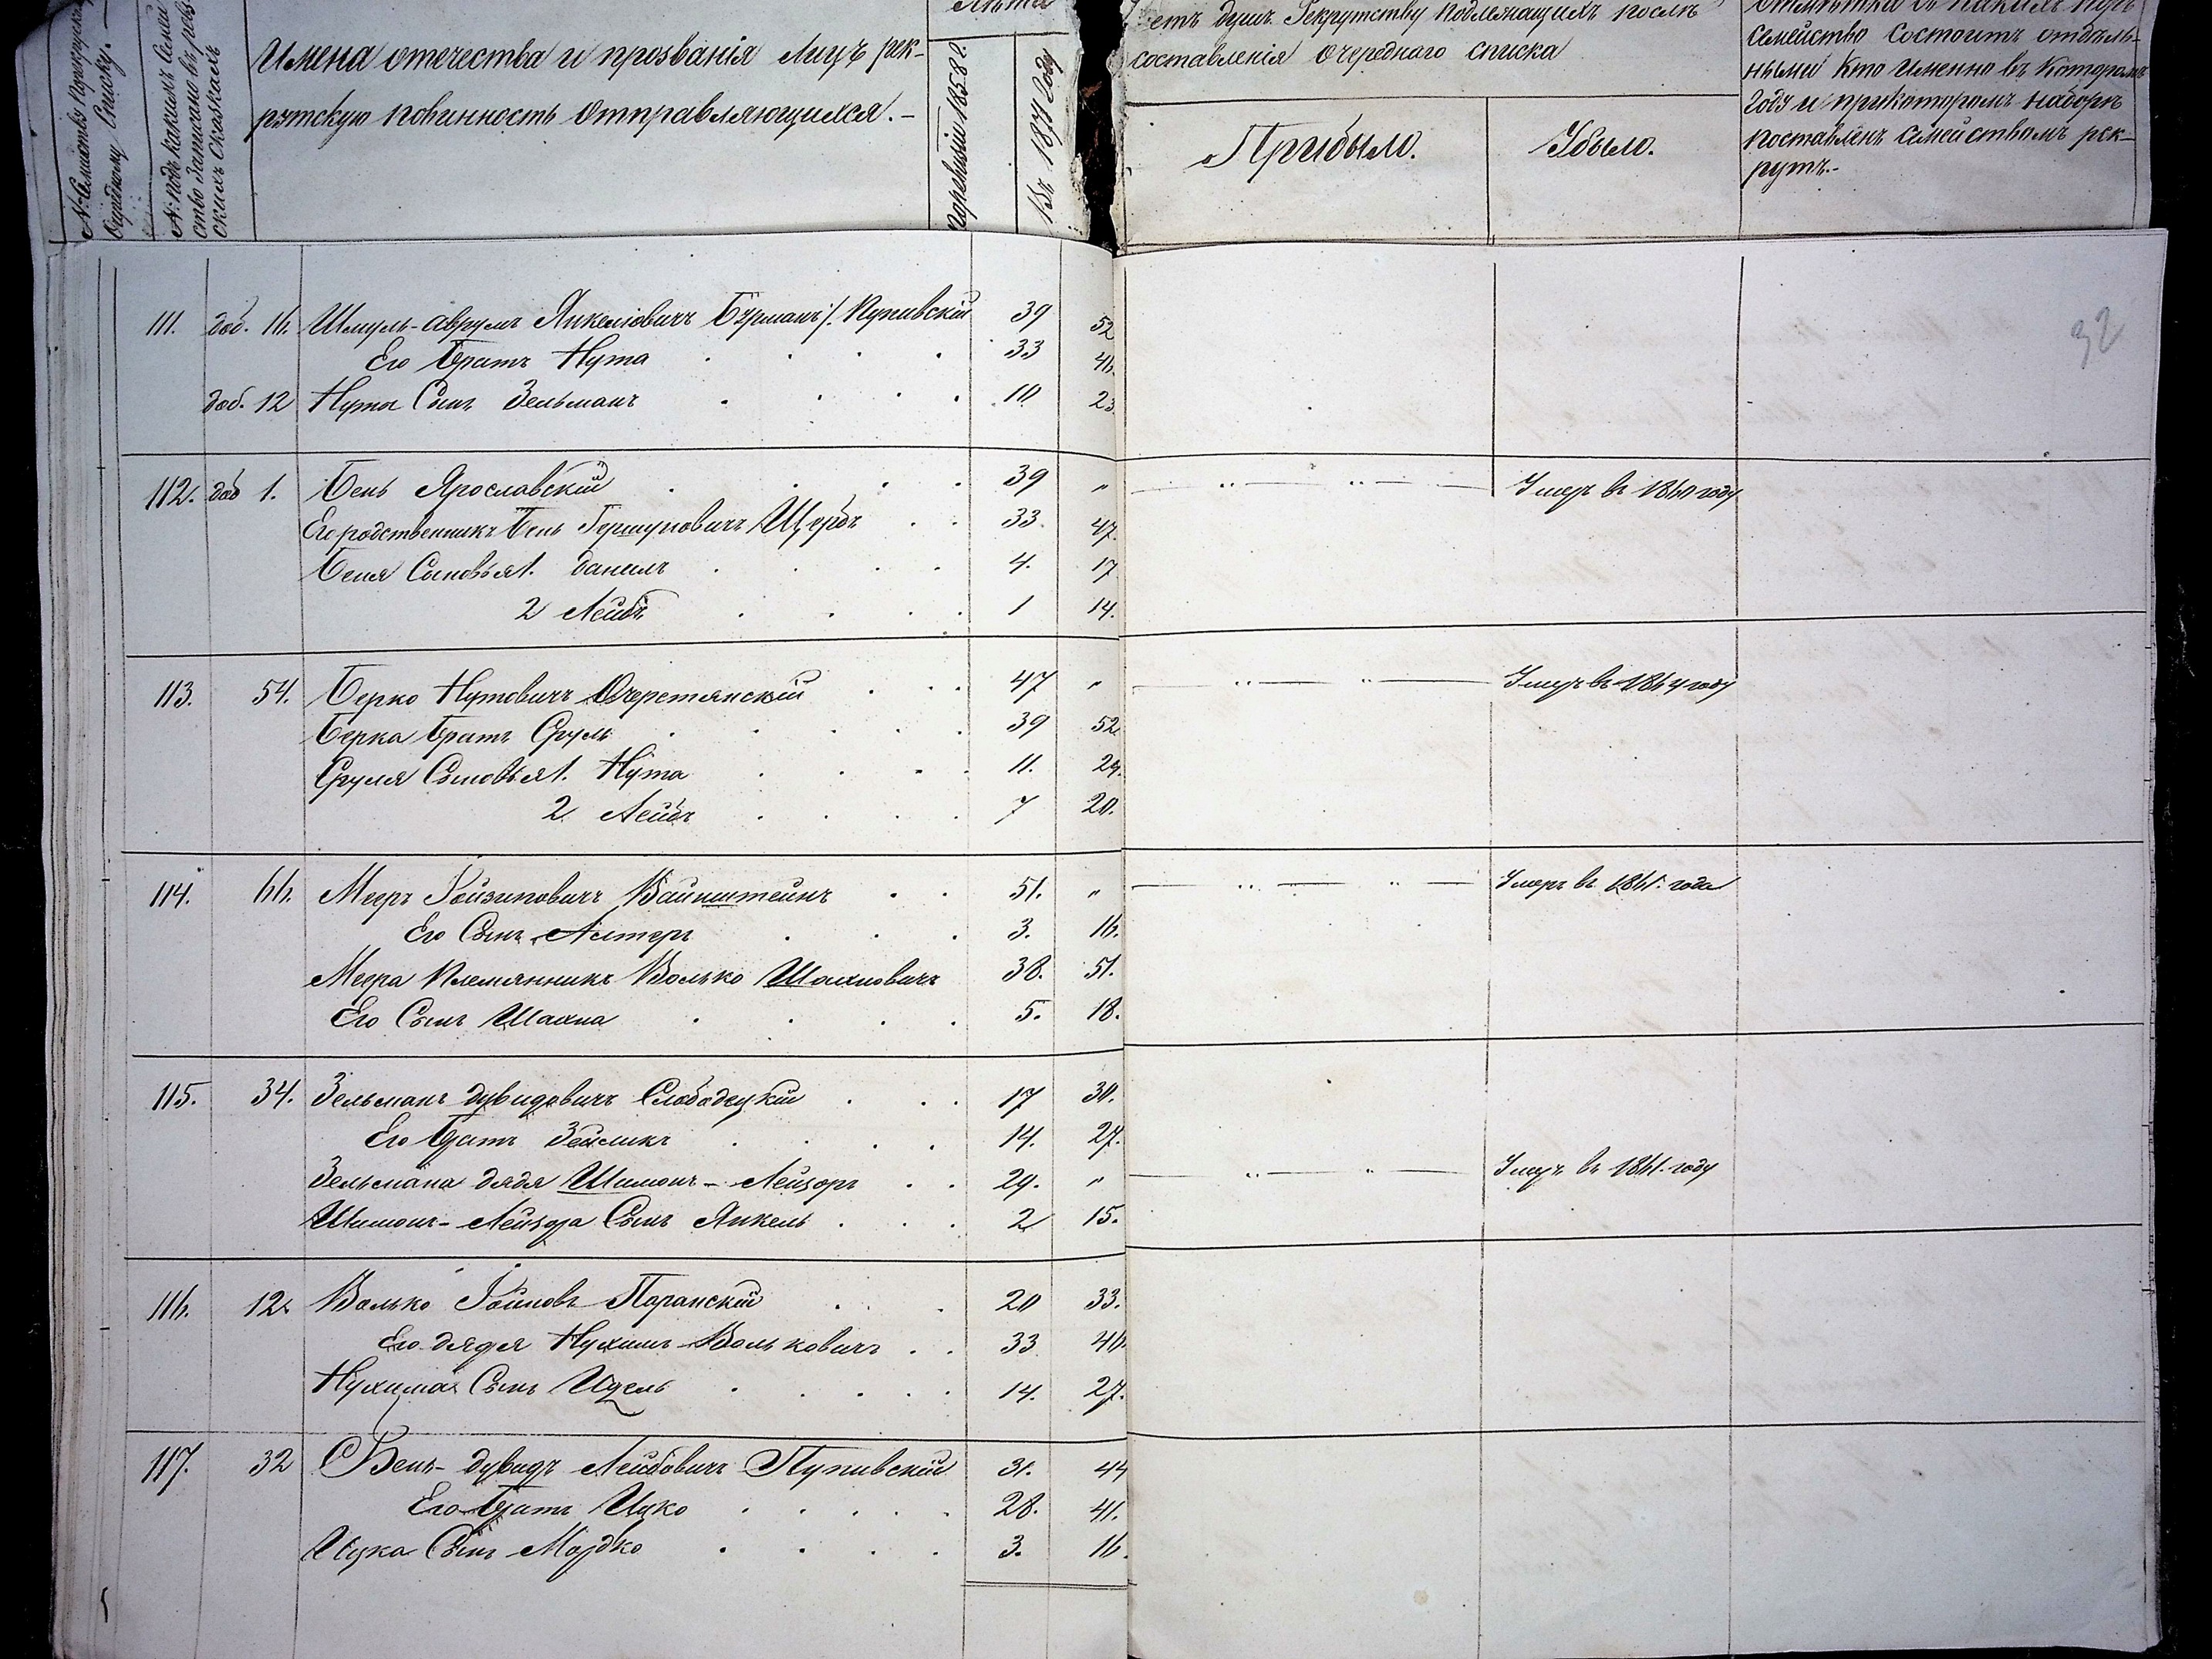 № Семейству
Очередному Списку. –
№ подъ какимъ Семей
ство Записано въ ревиз
скихъ Сказкахъ
Имена отечества и прозванія Лицъ рек-
рутскую повинность Отправляющихся. –
Лѣта
1858 г.
Въ 1871 Году
етъ душъ Рекрутству подлежащихъ послѣ
составленія Очереднаго списка
Прибыло.
Убыло.
Семейство Состоитъ отдѣль-
ными Кто Именно въ Которомъ
Году и прикоторомъ наборѣ
поставленъ Семействомъ рек-
рутъ.-
32
111. доб. 16. Шмуль-Аврумъ Янкеліовичъ Бурманъ /. Пупивскій 39 52
Его Братъ Нута 33 46.
доб. 12 Нута Сынъ Зельманъ 10 23.
112. доб 1. Бень Ярославскій 39 „ Умеръ въ 1860 году
Его родственникъ Бень Гершуновичъ Щербъ 33. 47.
Беня Сыновья 1. Данилъ 4. 17
2 Лейбъ 1 14.
113. 54. Берко Нутовичъ Очеретянскій 47 „ Умеръ въ 1864 году
Берка Братъ Сруль 39 52.
Сруля Сыновья 1. Нута 11. 24.
2 Лейбъ 7 20.
114. 66. Мееръ Вайнштейнъ 51. „ Умеръ въ 1861. года
Его Сынъ Алтеръ 3. 16.
Меера Племянникъ Волько Шахновичъ 38. 51.
Его Сынъ Шахна 5. 18.
115. 34. Зельманъ Дувидовичъ Слободецкій 17 30.
Его Братъ Зейликъ 14. 27.
Зельмана дядя Шимонъ-Лейзоръ 29. „ Умеръ въ 1861. году
Шимонъ-Лейзора Сынъ Янкель 2 15.
116. 12. Волько Паранскій 20 33.
Его дядя Нухимъ Вольковичъ 33 46.
Нухима Сынъ Идель 14. 27.
117. 32 Бень-Дувидъ Лейбовичъ Пупивскій 31. 44
Его Братъ Ицко 28. 41.
Ицка Сынъ Мордко 3. 16.